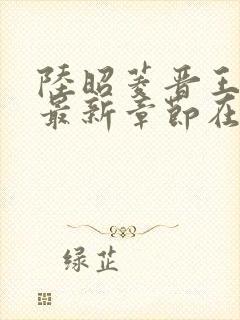 陸昭菱晋王
最新章節在
绿芷